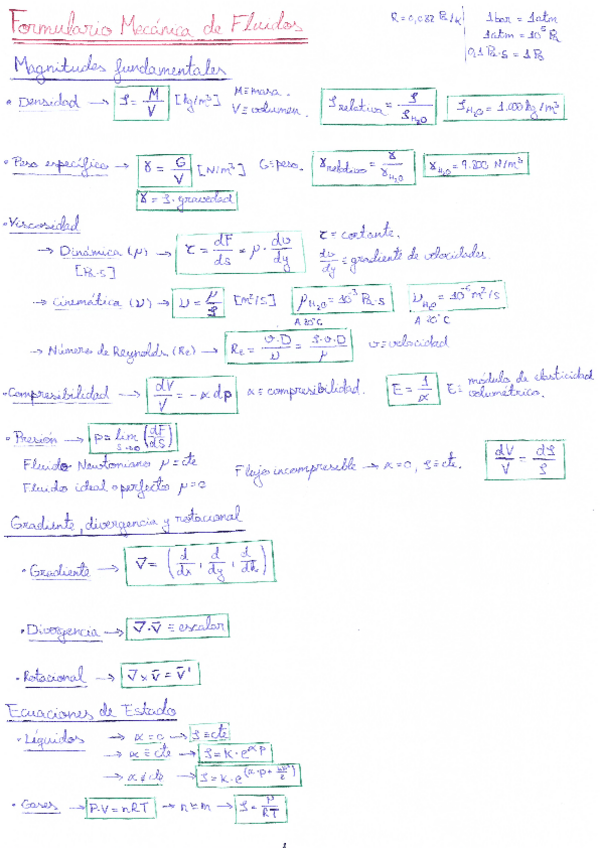 Formulario Mecánica de Fluidos
1 bar = 1 atm
1 atm = 10⁵ Pa
0,1 Pa·s = 1 Po
Magnitudes fundamentales
• Densidad → ρ = M/V [kg/m³] M ≡ masa. V ≡ volumen. ρrelativa = ρ/ρH₂O ρH₂O = 1.000 kg/m³
• Peso específico → γ = G/V [N/m³] G ≡ peso. γrelativo = γ/γH₂O γH₂O = 9.800 N/m³
γ = ρ · gravedad
• Viscosidad
→ Dinámica (μ) → τ = dF/ds = μ · dv/dy τ = cortante.
[Pa·s] dv/dy ≡ gradiente de velocidades
→ cinemática (ν) → ν = μ/ρ [m²/s] μH₂O = 10⁻³ Pa·s νH₂O = 10⁻⁶ m²/s
A 20°C A 20°C
→ Número de Reynolds (Re) → Re = v·D/ν = ρ·v·D/μ v ≡ velocidad
• Compresibilidad → dV/V = -α dp α ≡ compresibilidad. E = 1/α E ≡ módulo de elasticidad volumétrico.
• Presión → p = lim s→0 (dF/dS)
Fluido Newtoniano μ = cte
Flujo incompresible → α = 0, ρ = cte. dV/V = dρ/ρ
Fluido ideal o perfecto μ = 0
Gradiente, divergencia y rotacional
• Gradiente → ∇ = (d/dx, d/dy, d/dz)
• Divergencia → ∇·v̄ ≡ escalar
• Rotacional → ∇ × v̄ = v̄'
Ecuaciones de Estado
• Líquidos → α = 0 → ρ = cte
→ α = cte → ρ = K·e^αp
→ α ≠ cte → ρ = K·e^(α·p + bp²/2)
• Gases → P·V = nRT → n = m → ρ = P/RT
1